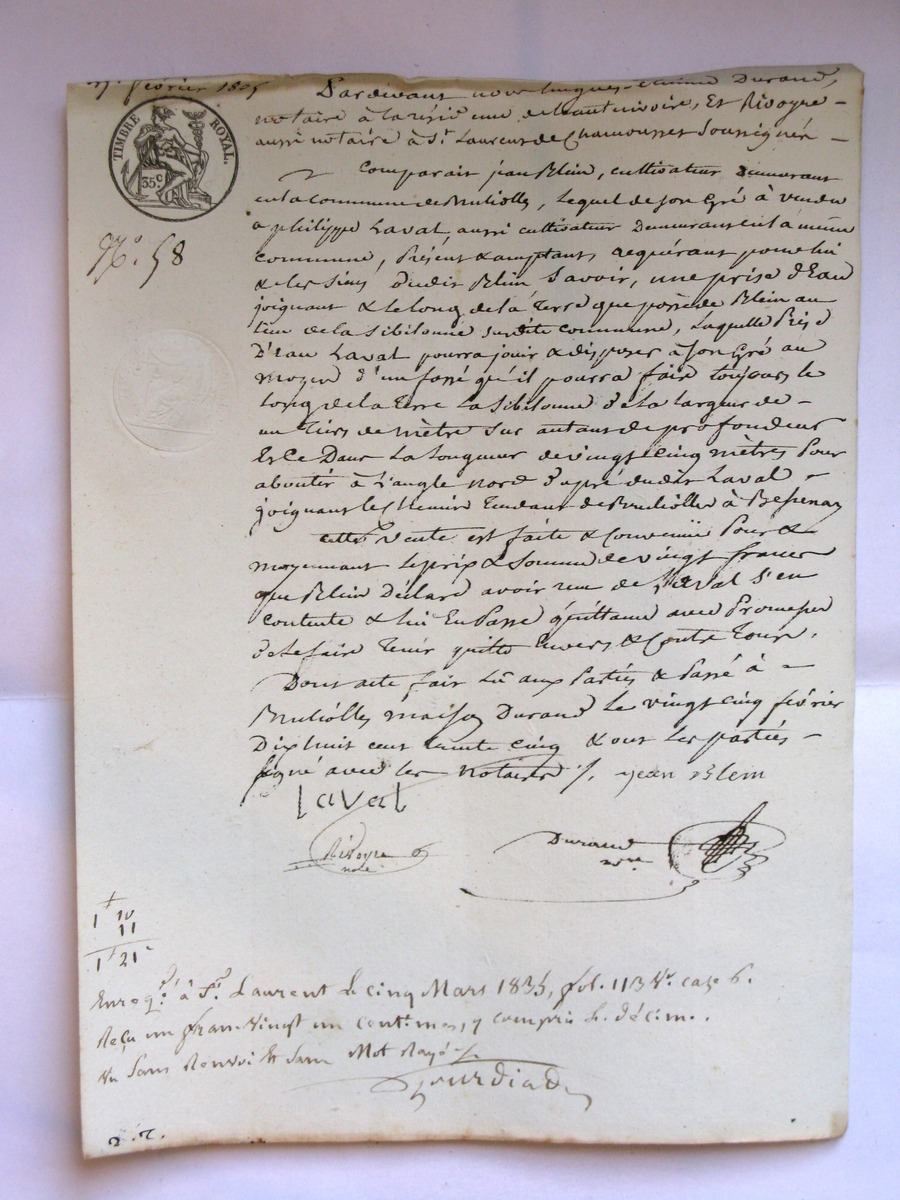 février 1835
TIMBRE ROYAL.
35 c.
N.° 58
Pardevant nous hugues Durand,
notaire à la résidence de hauterivoire, et Rivoyre
aussi notaire à St. Laurent de Chamousset soussignés
Comparait jean Blein, cultivateur demeurant
en la commune de Brulioles, lequel de son gré à vendu
a philippe Laval, aussi cultivateur demeurant en la même
commune, présent & acceptant, acquérant pour lui
& les siens dudit Blein, savoir, une prise d'eau
joignant & le long de la terre que possede Blein au
lieu de la sibilonne susdite commune, laquelle prise
d'eau Laval pourra jouir & disposer à son gré au
moyen d'un fossé qu'il pourra faire toujours le
long de la terre la sibilonne de la largeur de
un tiers de mètre sur autant de profondeur
et ce dans la longueur de vingt cinq mètres pour
aboutir à l'angle nord d'apré dudit Laval
joignant le chemin tendant de Brulioles à Bessenay
cette vente est faite & convenue pour &
moyennant le prix & somme de vingt francs
que Blein déclare avoir reçu de Laval s'en
contente & lui en passe quittance avec promesse
de le faire tenir quitte envers & contre tous.
Dont acte fait lu aux parties & passé à
Brulioles maison Durand le vingt cinq février
dix huit cent trente cinq & ont les parties
signé avec les notaires ./. jean Blein
Laval
Rivoyre
note
Durand
nre
1 f 10
11
1 f 21 c
Enreg.é à St. Laurent le cinq Mars 1835, fol. 113 Vo. case 6.
Reçu un franc vingt un centimes, y compris le décime.
Vu sans Renvoi & sans Mot Rayé ./.